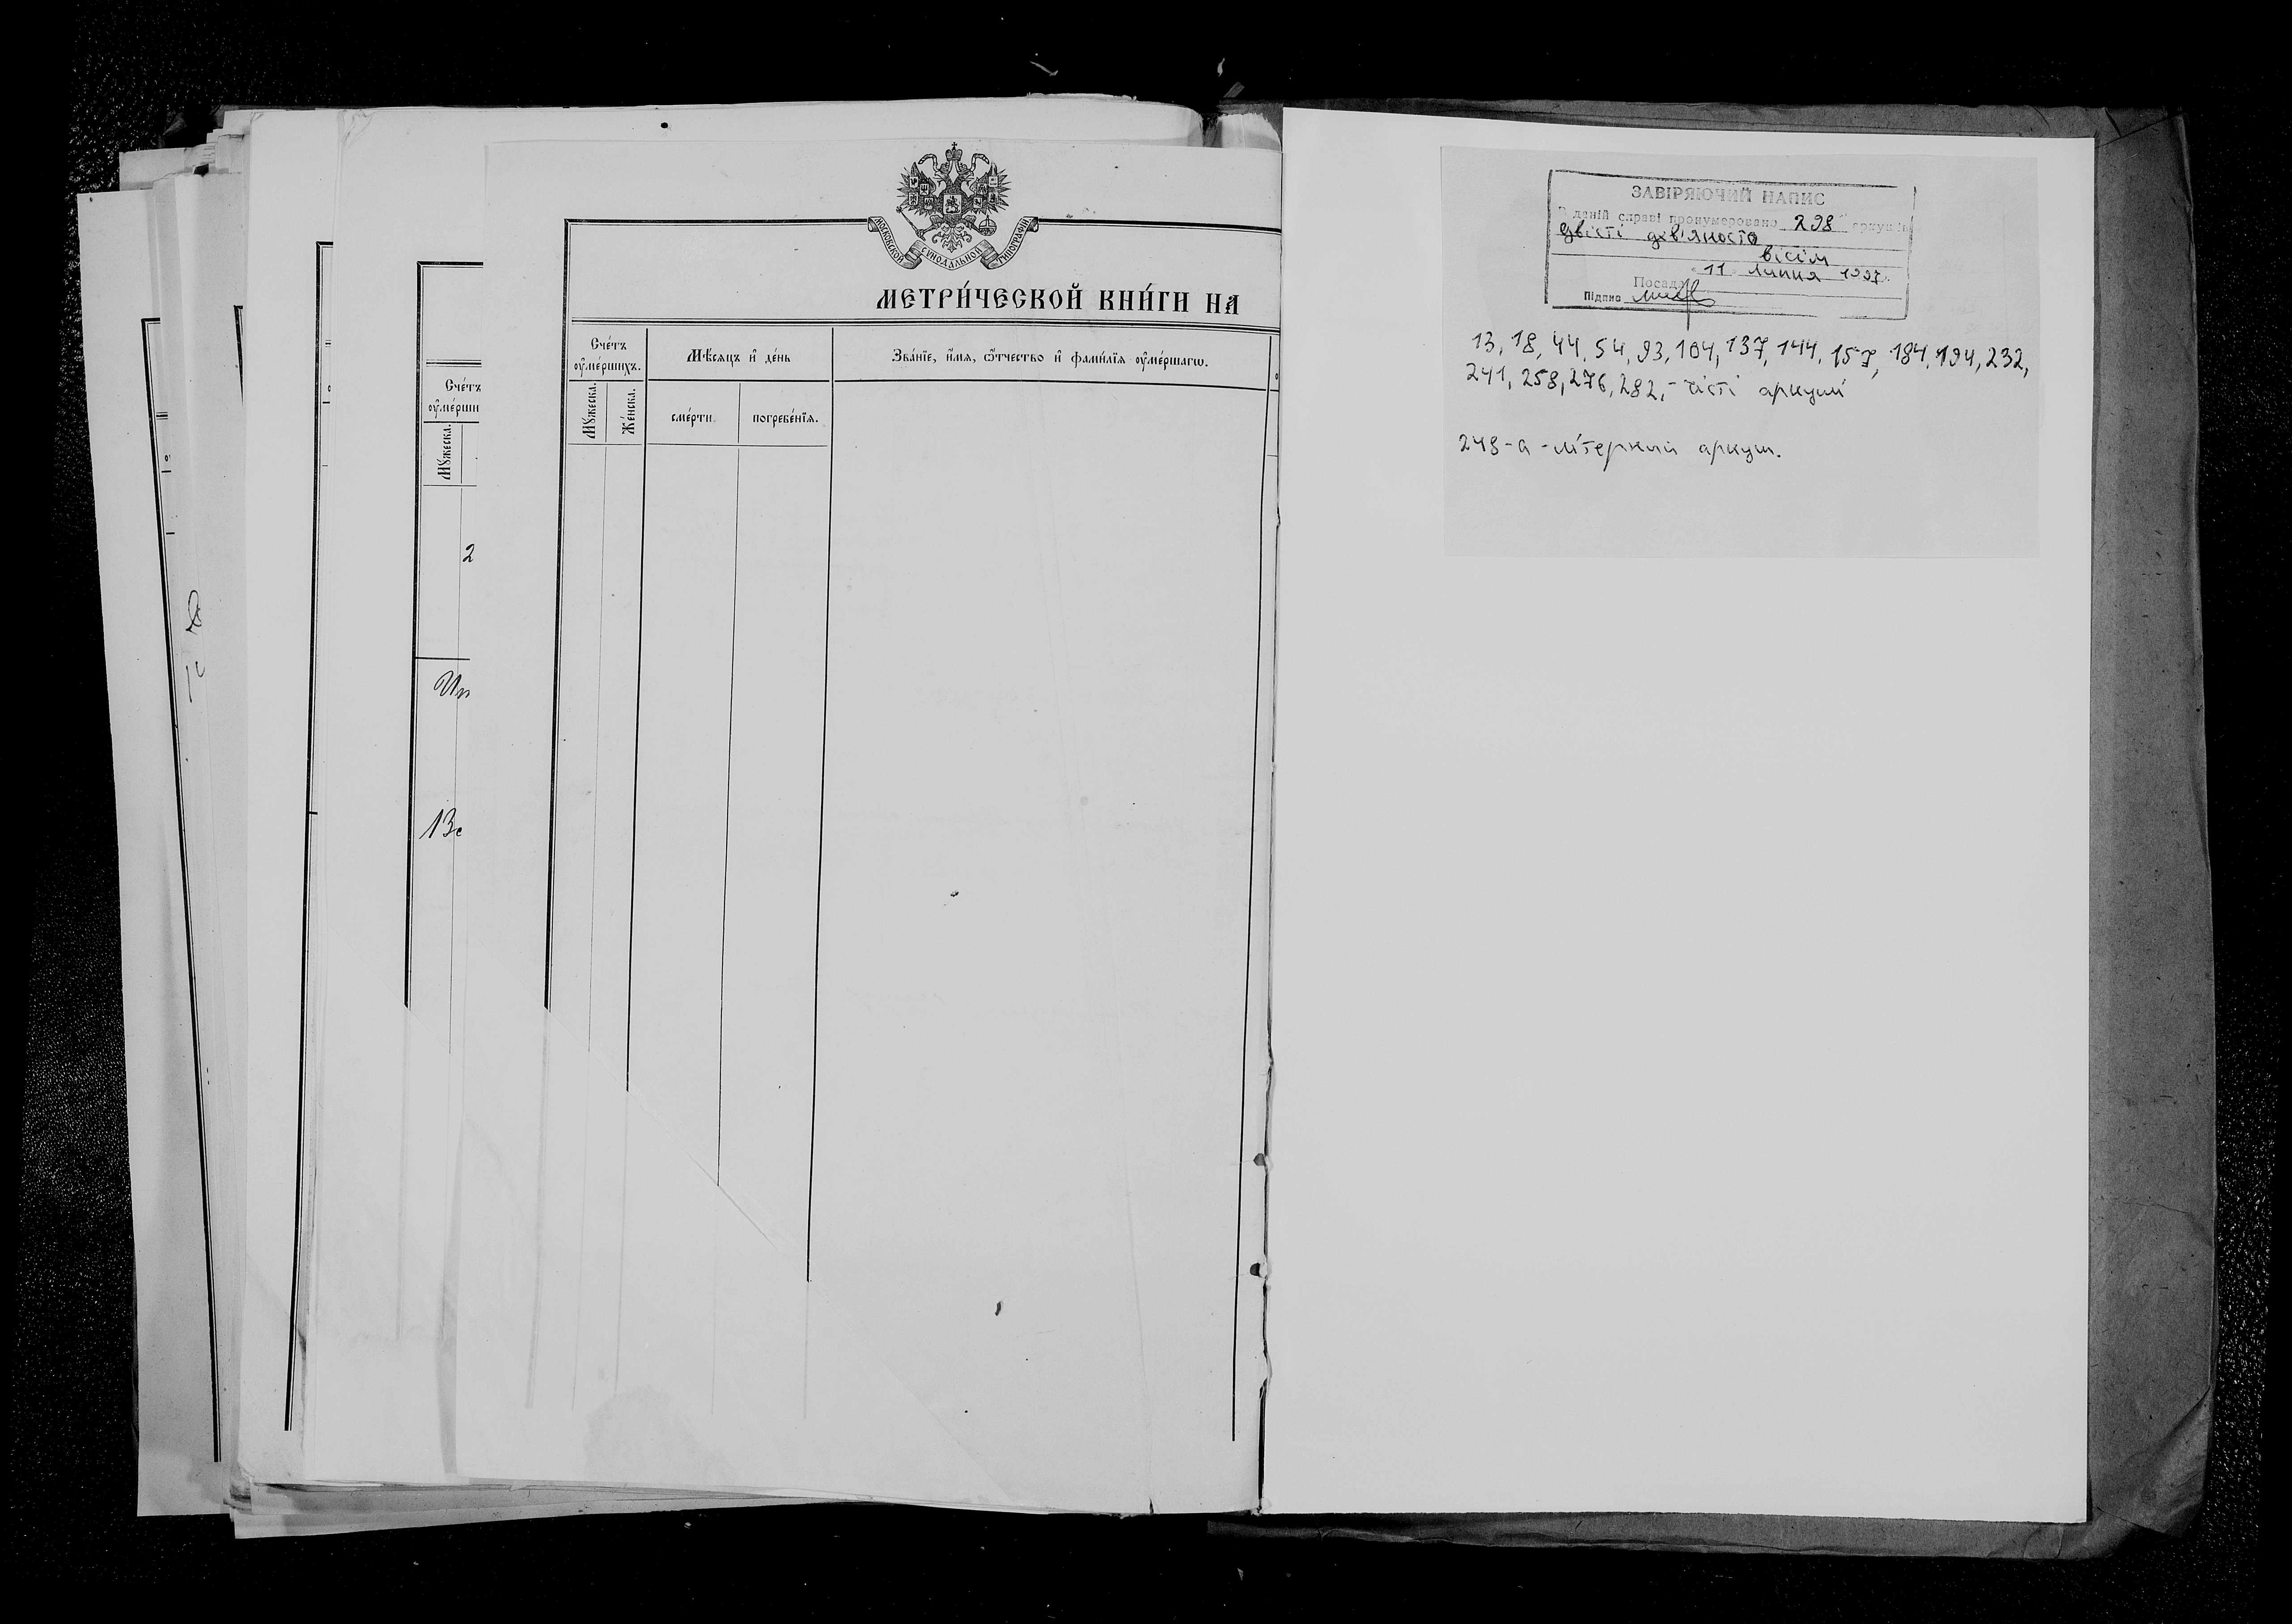 МОСКОВСКОЙ СѴНОДАЛЬНОЙ ТИПОГРАФІИ
МЕТРИ́ЧЕСКОЙ КНИ́ГИ НА
Сче́тъ
ᲂу҆ме́ршихъ.
Мѣ́сяцъ и҆ де́нь
Зва́нїе, и҆́мя, ѻ҆́тчество и҆ фами́лїя ᲂу҆ме́ршагѡ.
Мꙋ́жеска.
Же́нска.
сме́рти.
погребе́нїя.
Сче́тъ
ᲂу҆ме́рши
Мꙋ́жеска.
2
Ип
ЗАВІРЯЮЧИЙ НАПИС
В даній справі пронумеровано 298 аркушів
двісті дев'яносто
вісім
11 липня 1997
Посада
Підпис
13, 18, 44, 54, 93, 104, 137, 144, 157, 184, 194, 232,
241, 258, 276, 282, - чісті аркуші
248-а - літерний аркуш.